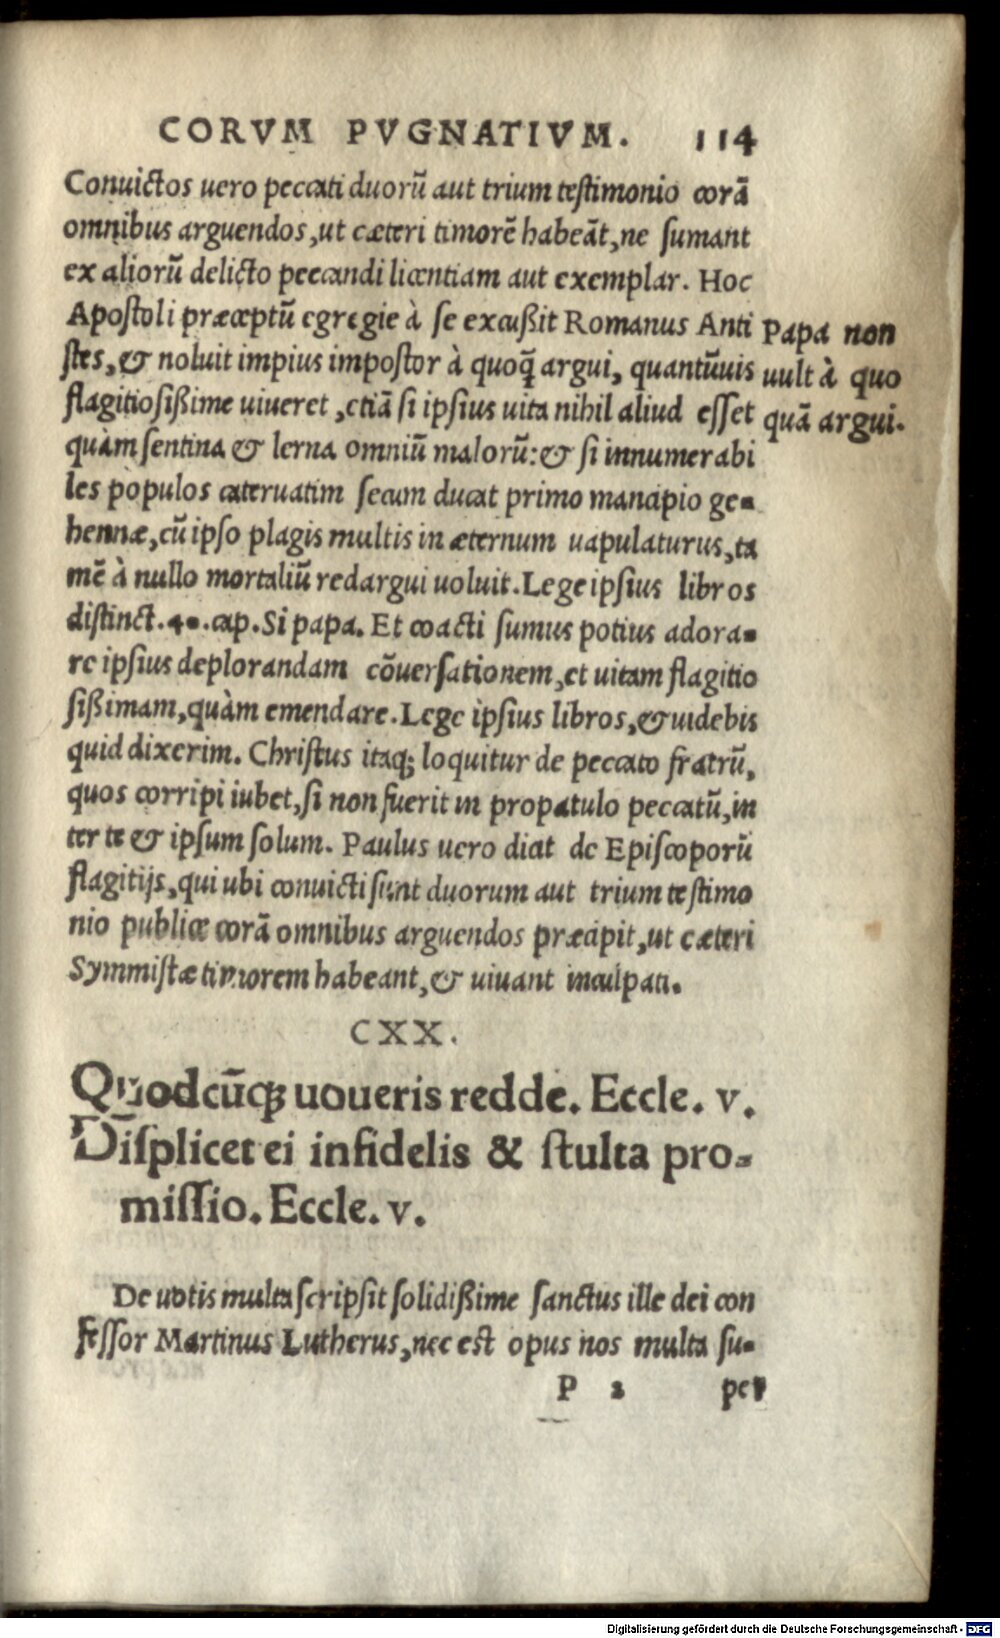 CORVM PVGNATIVM. 114
Conuictos uero peccati duorū aut trium testimonio corā
omnibus arguendos, ut cæteri timorē habeāt, ne sumant
ex aliorū delicto peccandi licentiam aut exemplar. Hoc
Apostoli præceptū egregie à se excußit Romanus Anti
stes, & noluit impius impostor à quoq̄ argui, quantūuis
flagitiosißime uiueret, etiā si ipsius uita nihil aliud esset
quàm sentina & lerna omniū malorū: & si innumerabi
les populos cateruatim secum ducat primo mancipio ge-
hennæ, cū ipso plagis multis in æternum uapulaturus, ta
mē à nullo mortaliū redargui uoluit. Lege ipsius libros
distinct. 40. cap. Si papa. Et coacti sumus potius adora-
re ipsius deplorandam cōuersationem, et uitam flagitio
sißimam, quàm emendare. Lege ipsius libros, & uidebis
quid dixerim. Christus itaq; loquitur de peccato fratrū,
quos corripi iubet, si non fuerit in propatulo peccatū, in
ter te & ipsum solum. Paulus uero dicit de Episcoporū
flagitijs, qui ubi conuicti sunt duorum aut trium testimo
nio publice corā omnibus arguendos præcipit, ut cæteri
Symmistæ timorem habeant, & uiuant inculpati.
Papa non
uult à quo
quā argui.
CXX.
Quodcūq; uoueris redde. Eccle. v.
Displicet ei infidelis & stulta pro-
missio. Eccle. v.
De uotis multa scripsit solidißime sanctus ille dei con
fessor Martinus Lutherus, nec est opus nos multa su-
P 2 per
Digitalisierung gefördert durch die Deutsche Forschungsgemeinschaft - DFG